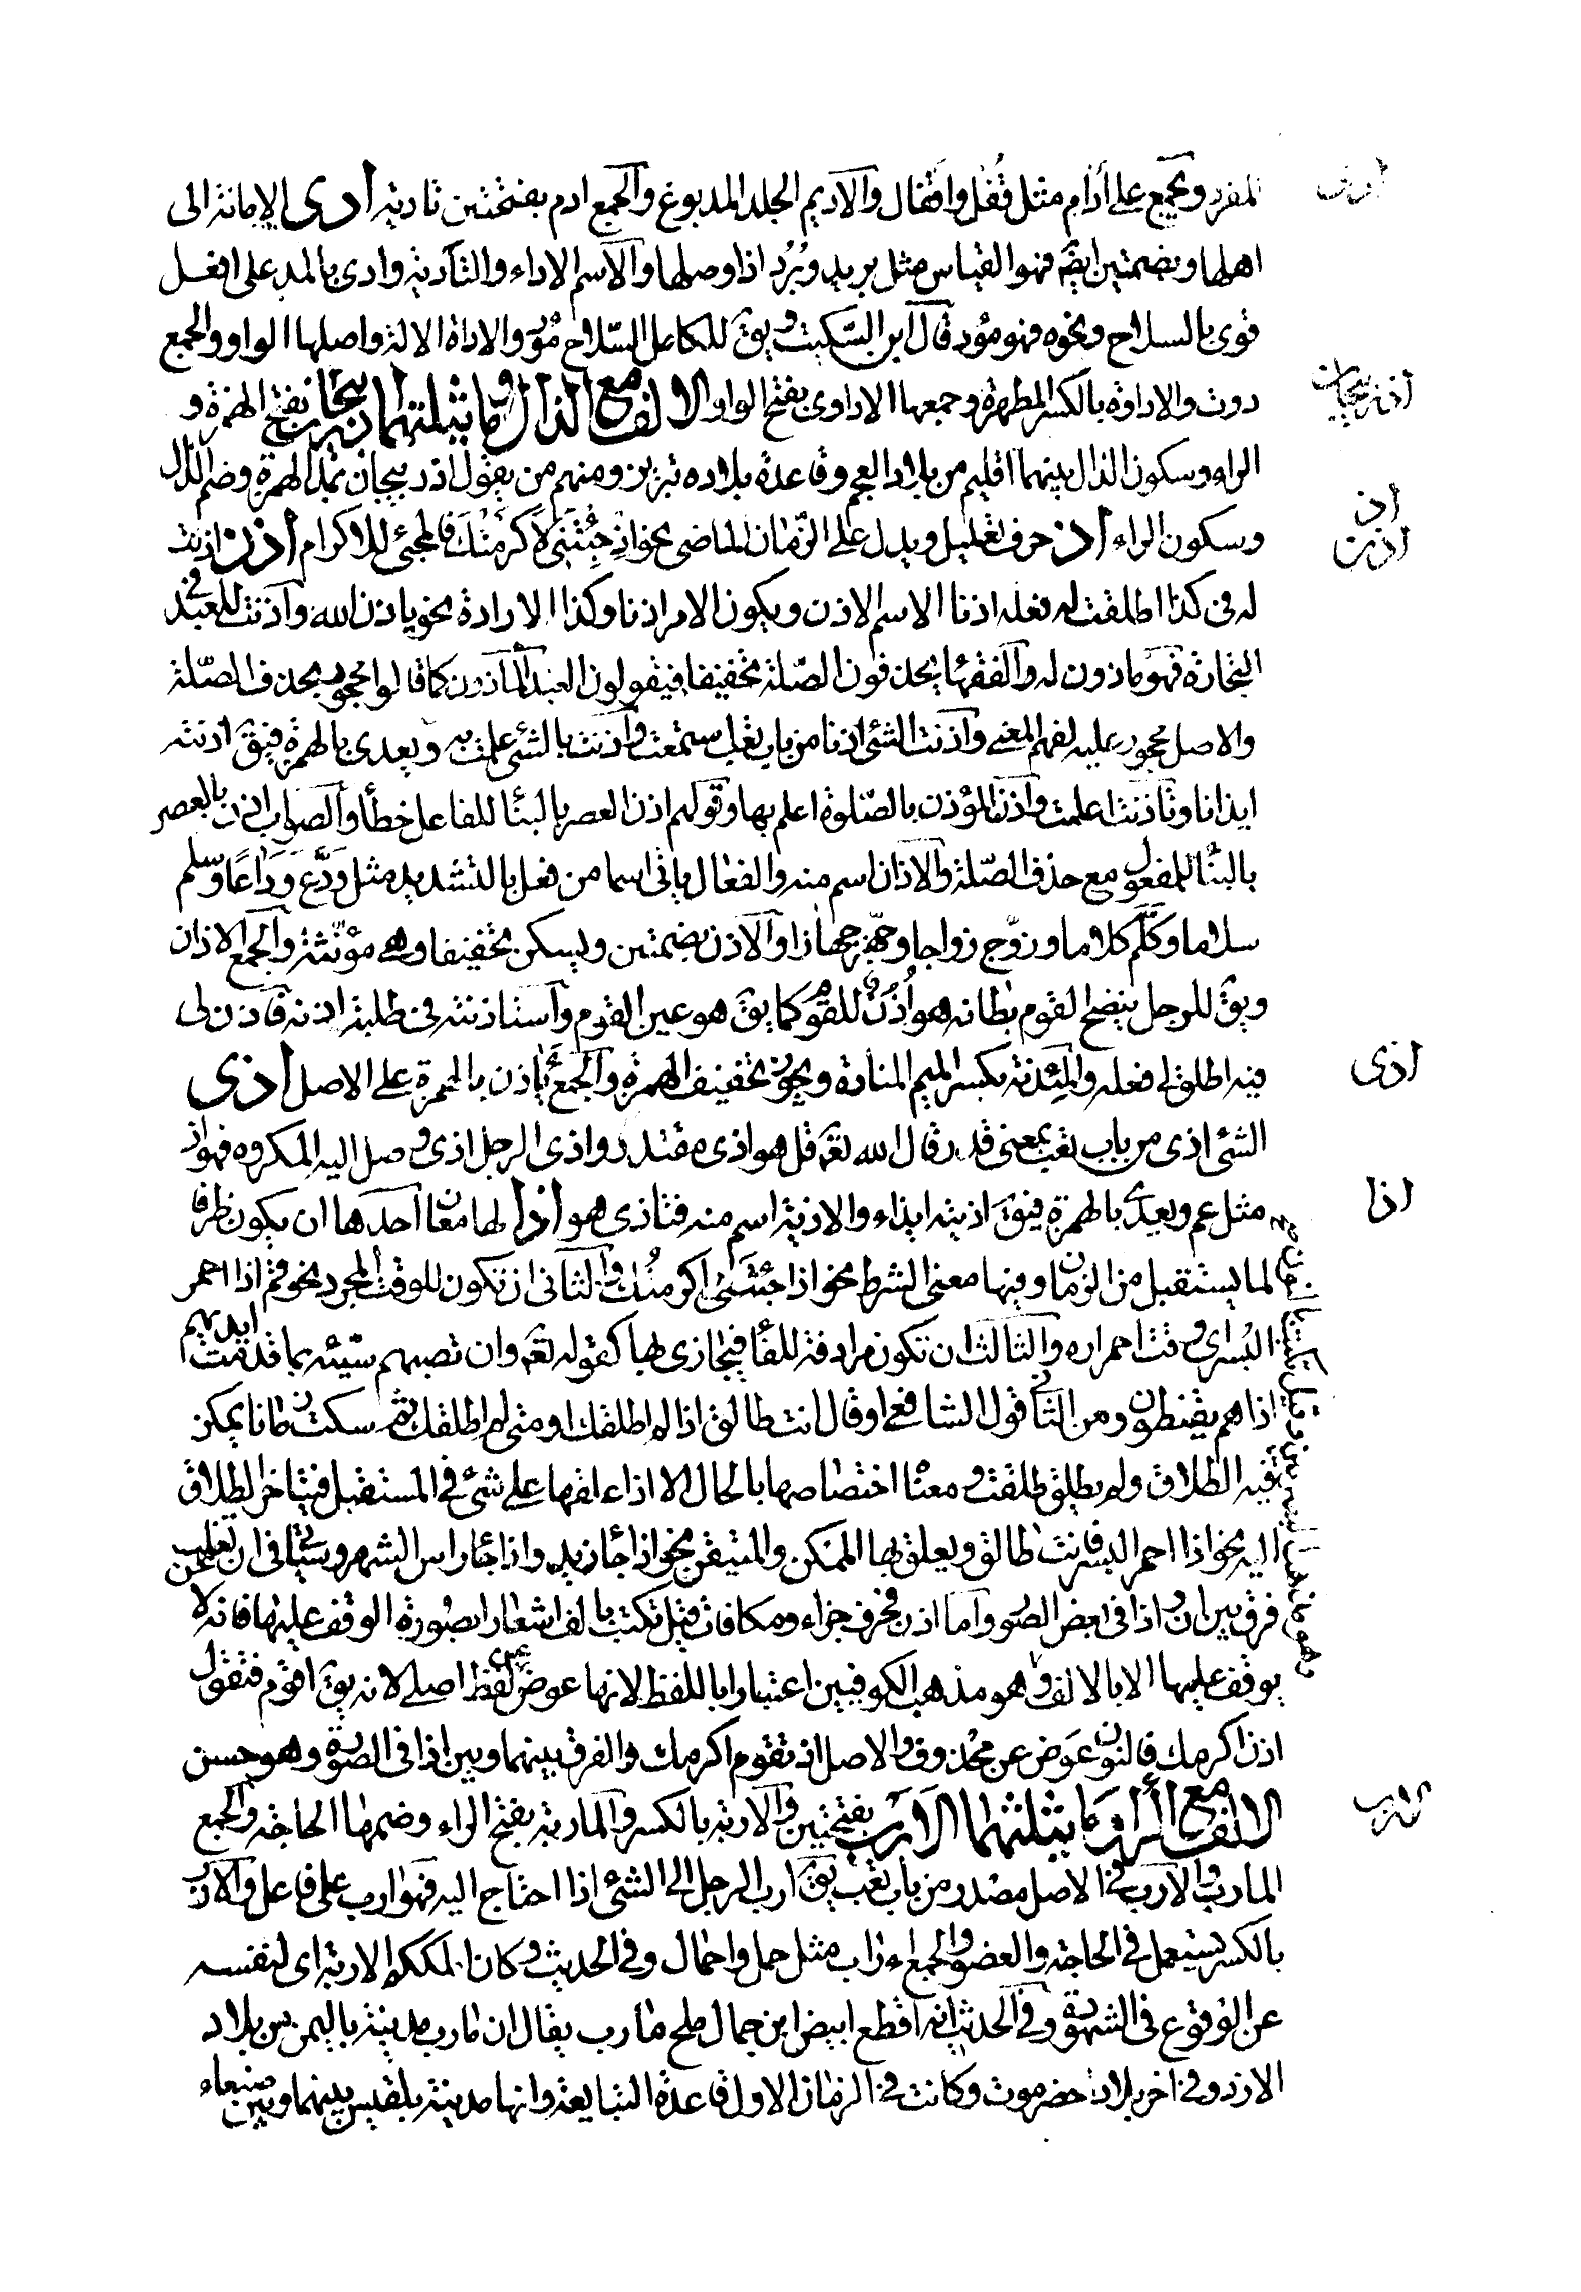 المفرد ويجمع على أدام مثل قفل واقفال والاديم الجلد المدبوغ والجمع ادم بفتحتين تاديته أدى الامانة الى
اهلها وبضمتين ايضا فهو القياس مثل بريد وبُرُد اذا وصلها والاسم الاداء والتأدية وادى بالمد على افعل
قوى بالسلاح ونحوه فهو مؤد قال ابن السّكيت ويق للكامل السّلاح مؤد والاداة الالة واصلها الواو والجمع
دوت والاداوة بالكسر المطهرة وجمعها الاداوى بفتح الواو الالف مع الذال وما يثلثهما اذربيجان بفتح الهمزة و
الراء وسكون الذال بينهما اقليم من بلاد العجم وقاعدة بلاده تبريز ومنهم من يقول اذربيجان بمد الهمزة وضم الذال
وسكون الراء اذ حرف تعليل ويدل على الزّمان الماضى نحو اذ جِئْتَنِى لَاَكْرَمْتُكَ فالمجئ للاكرام أذن اذنت
له فى كذا اطلقت له فعله اذنا الاسم الاذن ويكون الامر اذنا وكذا الارادة نحو باذن الله وآذنت للعبد فى
التجارة فهو ماذون له والفقها يحذفون الصّلة تخفيفا فيقولون العبد المأذون كما قالوا محجور بحذف الصّلة
والاصل محجور عليه لفهم المعنى وآذنت الشئ اذنا من باب تعب استمعت وآذنت بالشئ علمت به ويعدى بالهمزة فيق اذنته
ايذانا وتاذنت اعلمت واذن المؤذن بالصّلوة اعلم بها وقولهم اذن العصر بالبنأ للفاعل خطأ والصواب اذن بالعصر
بالبنأ للمفعول مع حذف الصّلة والاذان اسم منه والفعال ياتى اسما من فعل بالتشديد مثل وَدَّع وَدَاعًا وسلم
سلاما وكلّم كلاما وزوّج زواجا وجهّز جهازا والاذن بضمتين ويسكن تخفيفا وهى مؤنّثة والجمع الاذان
ويق للرجل ينصح القوم بطانة هو اُذُن للقوم كما يق هو عين القوم وآستاذنته فى طلبته اذنه فاذن لى
فيه اطلق لى فعله والمئذنة بكسر الميم المنارة ويجوز تخفيف الهمزة والجمع مأذن بالهمزة على الاصل أذى
الشئ اذى من باب تعب بمعنى قذر قال الله تعه قل هو اذى مقتذر واذى الرجل اذى وصل اليه المكروه فهو اذ
مثل عم ويعدى بالهمزة فيق اذيته ايذاء والاذية اسم منه فتاذى هو اذا لها معان احدها ان يكون ظرفا
لما يستقبل من الزمان وفيها معنى الشرط نحو اذا جئتنى اكرمتك والثانى ان تكون للوقت المجرد نحو قم اذا احمر
البُسر اى وقت احمراره والثالث ان تكون مرادفة للفأ فيجازى بها كقوله تعه وان تصبهم سيّئة بما قدمت ايديهم
اذا هم يقنطون ومن الثانى قول الشافعى لو قال انت طالق اذا لم اطلقك او متى لم اطلقك ثم سكت زمانا يمكن
فيه الطلاق ولم يطلق طلقت ومعنا اختصاصها بالحال الا اذا علقها على شئ فى المستقبل فيتاخر الطلاق
اليه نحو اذا احمر البسر فانت طالق ويعلق بها الممكن والمتيقن نحو اذا جأ زيد واذا جأ راس الشهر وسياتى فى ان
فرق بين ان واذا فى بعض الصور واما اذن فحرف جزاء ومكافات قيل تكتب بالف اشعارا بصورة الوقف عليها فانه لا
يوقف عليها الا بالالف وهو مذهب الكوفيين اعتبارا باللفظ لانها عوض عن لفظ اصلى لانه يق اقوم فتقول
اذن اكرمك فالنون عوض عن محذوف والاصل اذ تقوم اكرمك والفرق بينها وبين اذا فى الصورة وهو حسن
الالف مع الراء وما يثلثهما الارب بفتحتين والاربة بالكسر والماربة بفتح الراء وضمها الحاجة والجمع
المارب والارب فى الاصل مصدر من باب تعب يق ارب الرجل الى الشئ اذا احتاج اليه فهو ارب على فاعل والارب
بالكسر يستعمل فى الحاجة والعضو والجمع اراب مثل حمل واحمال وفى الحديث وكان املككم لاربه اى لنفسه
عن الوقوع فى الشهوة وفى الحديث انه اقطع ابيض ابن حمال ملح مارب يقال ان مارب مدينة باليمن من بلاد
الازد وفى اخر بلاد حضرموت وكانت فى الزمان الاول قاعدة التبابعة وانها مدينة بلقيس بينها وبين صنعاء
اذربيجان
اذ
اذن
اذى
اذا